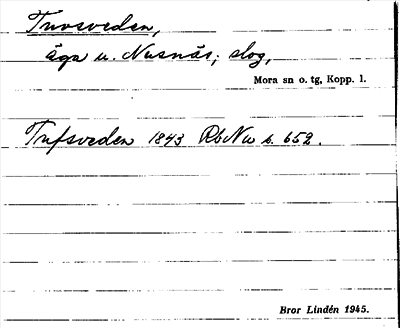 Tuvsveden,
äga u. Nusnäs; slog,
Mora sn o. tg, Kopp. l.
Tufsveden 1843 RbNu s. 652.
Bror Lindén 1945.